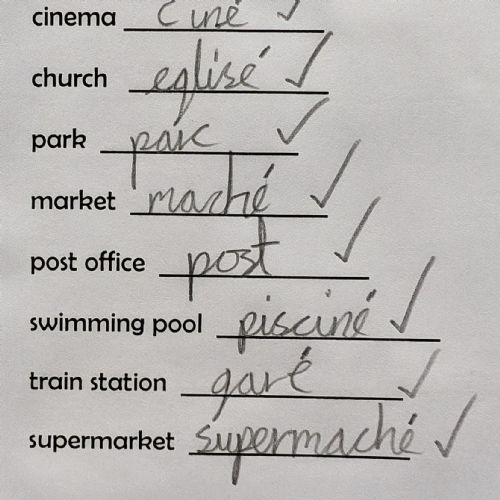 cinema ciné
church eglisé
park parc
market maché
post office post
swimming pool pisciné
train station garé
supermarket supermaché